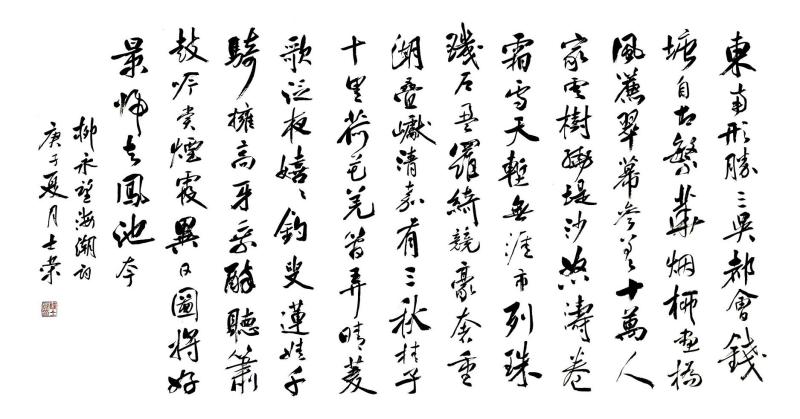 東南形勝三吳都會錢
塘自古繁華烟柳畫橋
風簾翠幕參差十萬人
家雲樹繞堤沙怒濤卷
霜雪天塹無涯市列珠
璣戶盈羅綺競豪奢重
湖疊巘清嘉有三秋桂子
十里荷花羌管弄晴菱
歌泛夜嬉〻釣叟蓮娃千
騎擁高牙乘醉聽簫
鼓吟賞煙霞異日圖將好
景歸去鳳池夸
柳永望海潮詞
庚子夏月士荣